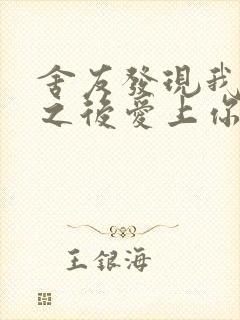 舍友發現我
之後愛上你
王銀海